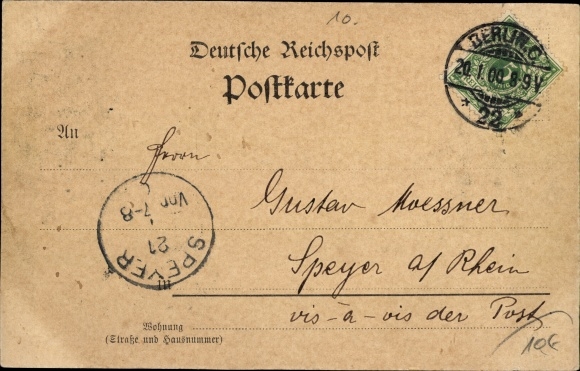 10.
Deutsche Reichspost
Postkarte
BERLIN.C.
20.1.00.8-9V.
* 22 *
An
Herrn
Gustav Moessner
SPEYER
21
Vor 7-8
Speyer a/Rhein
in
vis-à-vis der Post
Wohnung
(Straße und Hausnummer)
10€